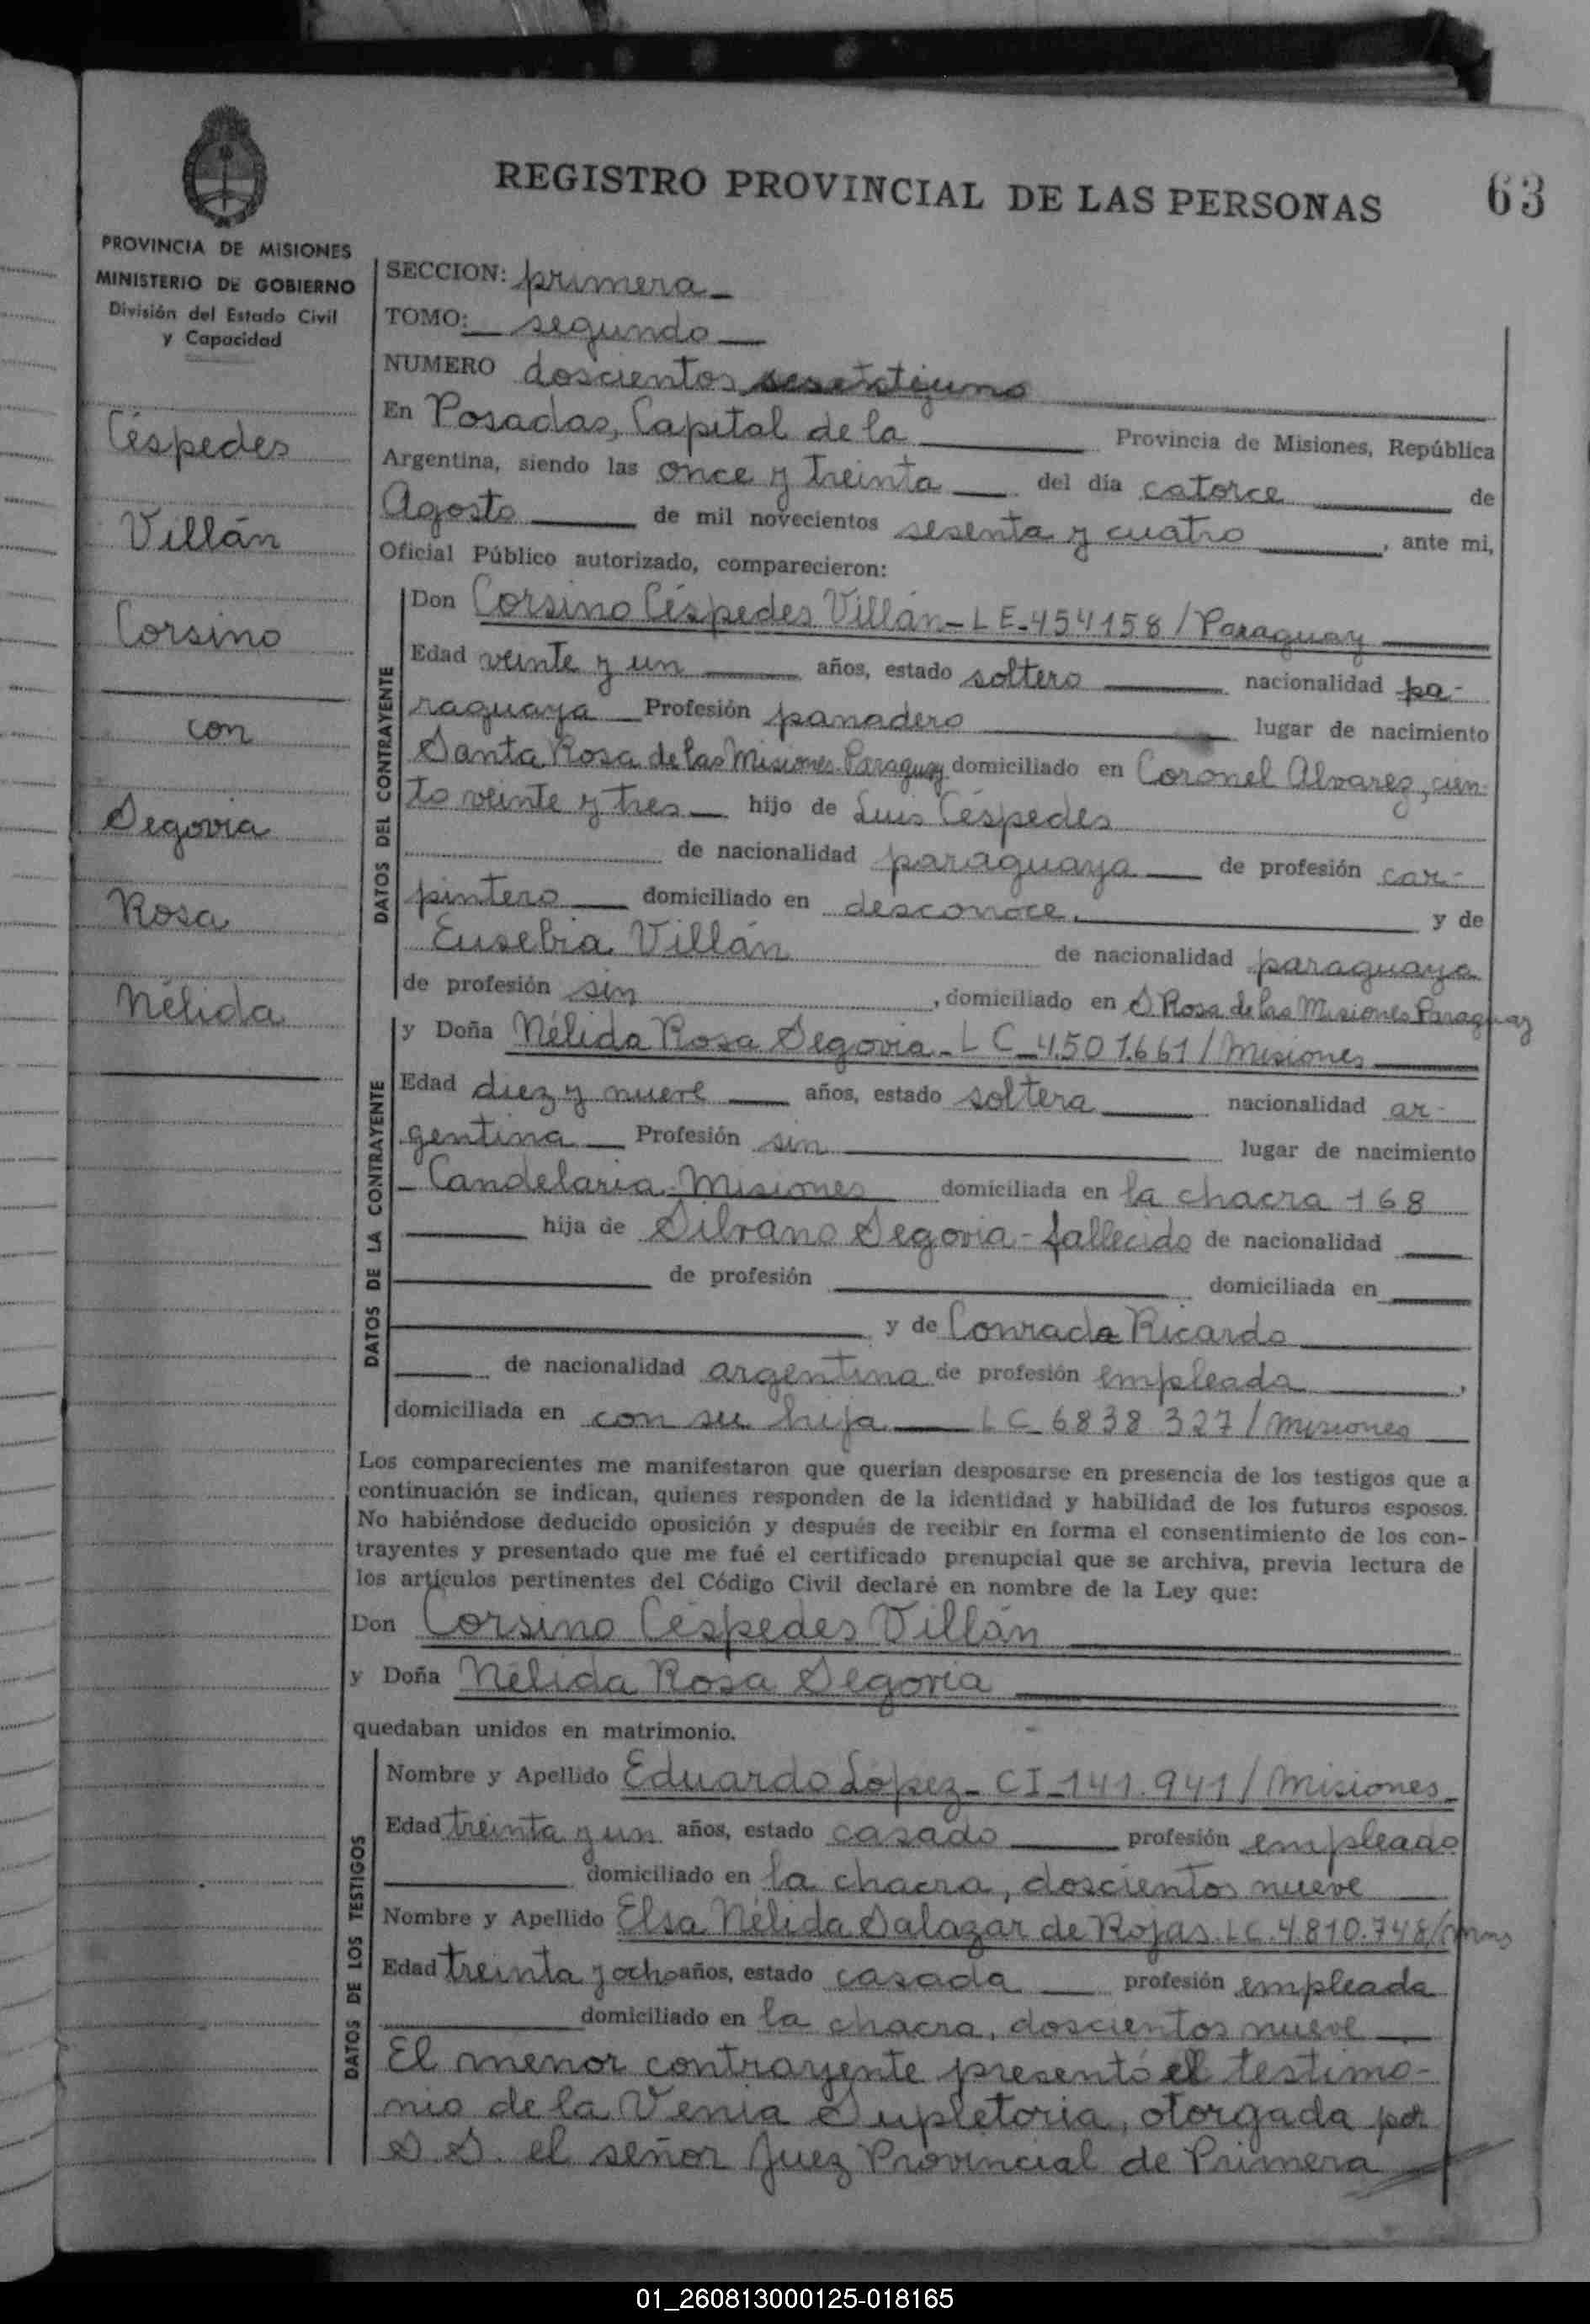 REGISTRO PROVINCIAL DE LAS PERSONAS
63
PROVINCIA DE MISIONES
MINISTERIO DE GOBIERNO
División del Estado Civil
y Capacidad
Céspedes
Villán
Corsino
con
Segovia
Rosa
Nélida
SECCION: primera
TOMO: segundo
NUMERO doscientos
En Posadas, Capital de la Provincia de Misiones, República
Argentina, siendo las once y treinta del día catorce de
Agosto de mil novecientos sesenta y cuatro, ante mi,
Oficial Público autorizado, comparecieron:
DATOS DEL CONTRAYENTE
Don Corsino Céspedes Villán - L E. 454158 / Paraguay
Edad veinte y un años, estado soltero nacionalidad pa-
raguaya Profesión panadero lugar de nacimiento
Santa Rosa de las Misiones Paraguay domiciliado en Coronel Alvarez, cien-
to veinte y tres hijo de Luis Céspedes
de nacionalidad paraguaya de profesión car-
pintero domiciliado en desconoce. y de
Eusebia Villán de nacionalidad paraguaya
de profesión sin, domiciliado en S Rosa de las Misiones Paraguay
DATOS DE LA CONTRAYENTE
y Doña Nélida Rosa Segovia - L C 4.501.661 / Misiones
Edad diez y nueve años, estado soltera nacionalidad ar-
gentina Profesión sin lugar de nacimiento
Candelaria - Misiones domiciliada en la chacra 168
hija de Silvano Segovia - fallecido de nacionalidad
de profesión domiciliada en
y de Conrada Ricardo
de nacionalidad argentina de profesión empleada,
domiciliada en con su hija L C 6838.327 / misiones
Los comparecientes me manifestaron que querían desposarse en presencia de los testigos que a
continuación se indican, quienes responden de la identidad y habilidad de los futuros esposos.
No habiéndose deducido oposición y después de recibir en forma el consentimiento de los con-
trayentes y presentado que me fué el certificado prenupcial que se archiva, previa lectura de
los artículos pertinentes del Código Civil declaré en nombre de la Ley que:
Don Corsino Céspedes Villán
y Doña Nélida Rosa Segovia
quedaban unidos en matrimonio.
DATOS DE LOS TESTIGOS
Nombre y Apellido Eduardo López - C I - 141.941 / Misiones
Edad treinta y un años, estado casado profesión empleado
domiciliado en la chacra, doscientos nueve
Nombre y Apellido Elsa Nélida Salazar de Rojas. L C. 4.810.748 / Mnes
Edad treinta y ocho años, estado casada profesión empleada
domiciliado en la chacra, doscientos nueve
El menor contrayente presentó el testimo-
nio de la Venia Supletoria, otorgada por
S. S. el señor Juez Provincial de Primera
01_260813000125-018165